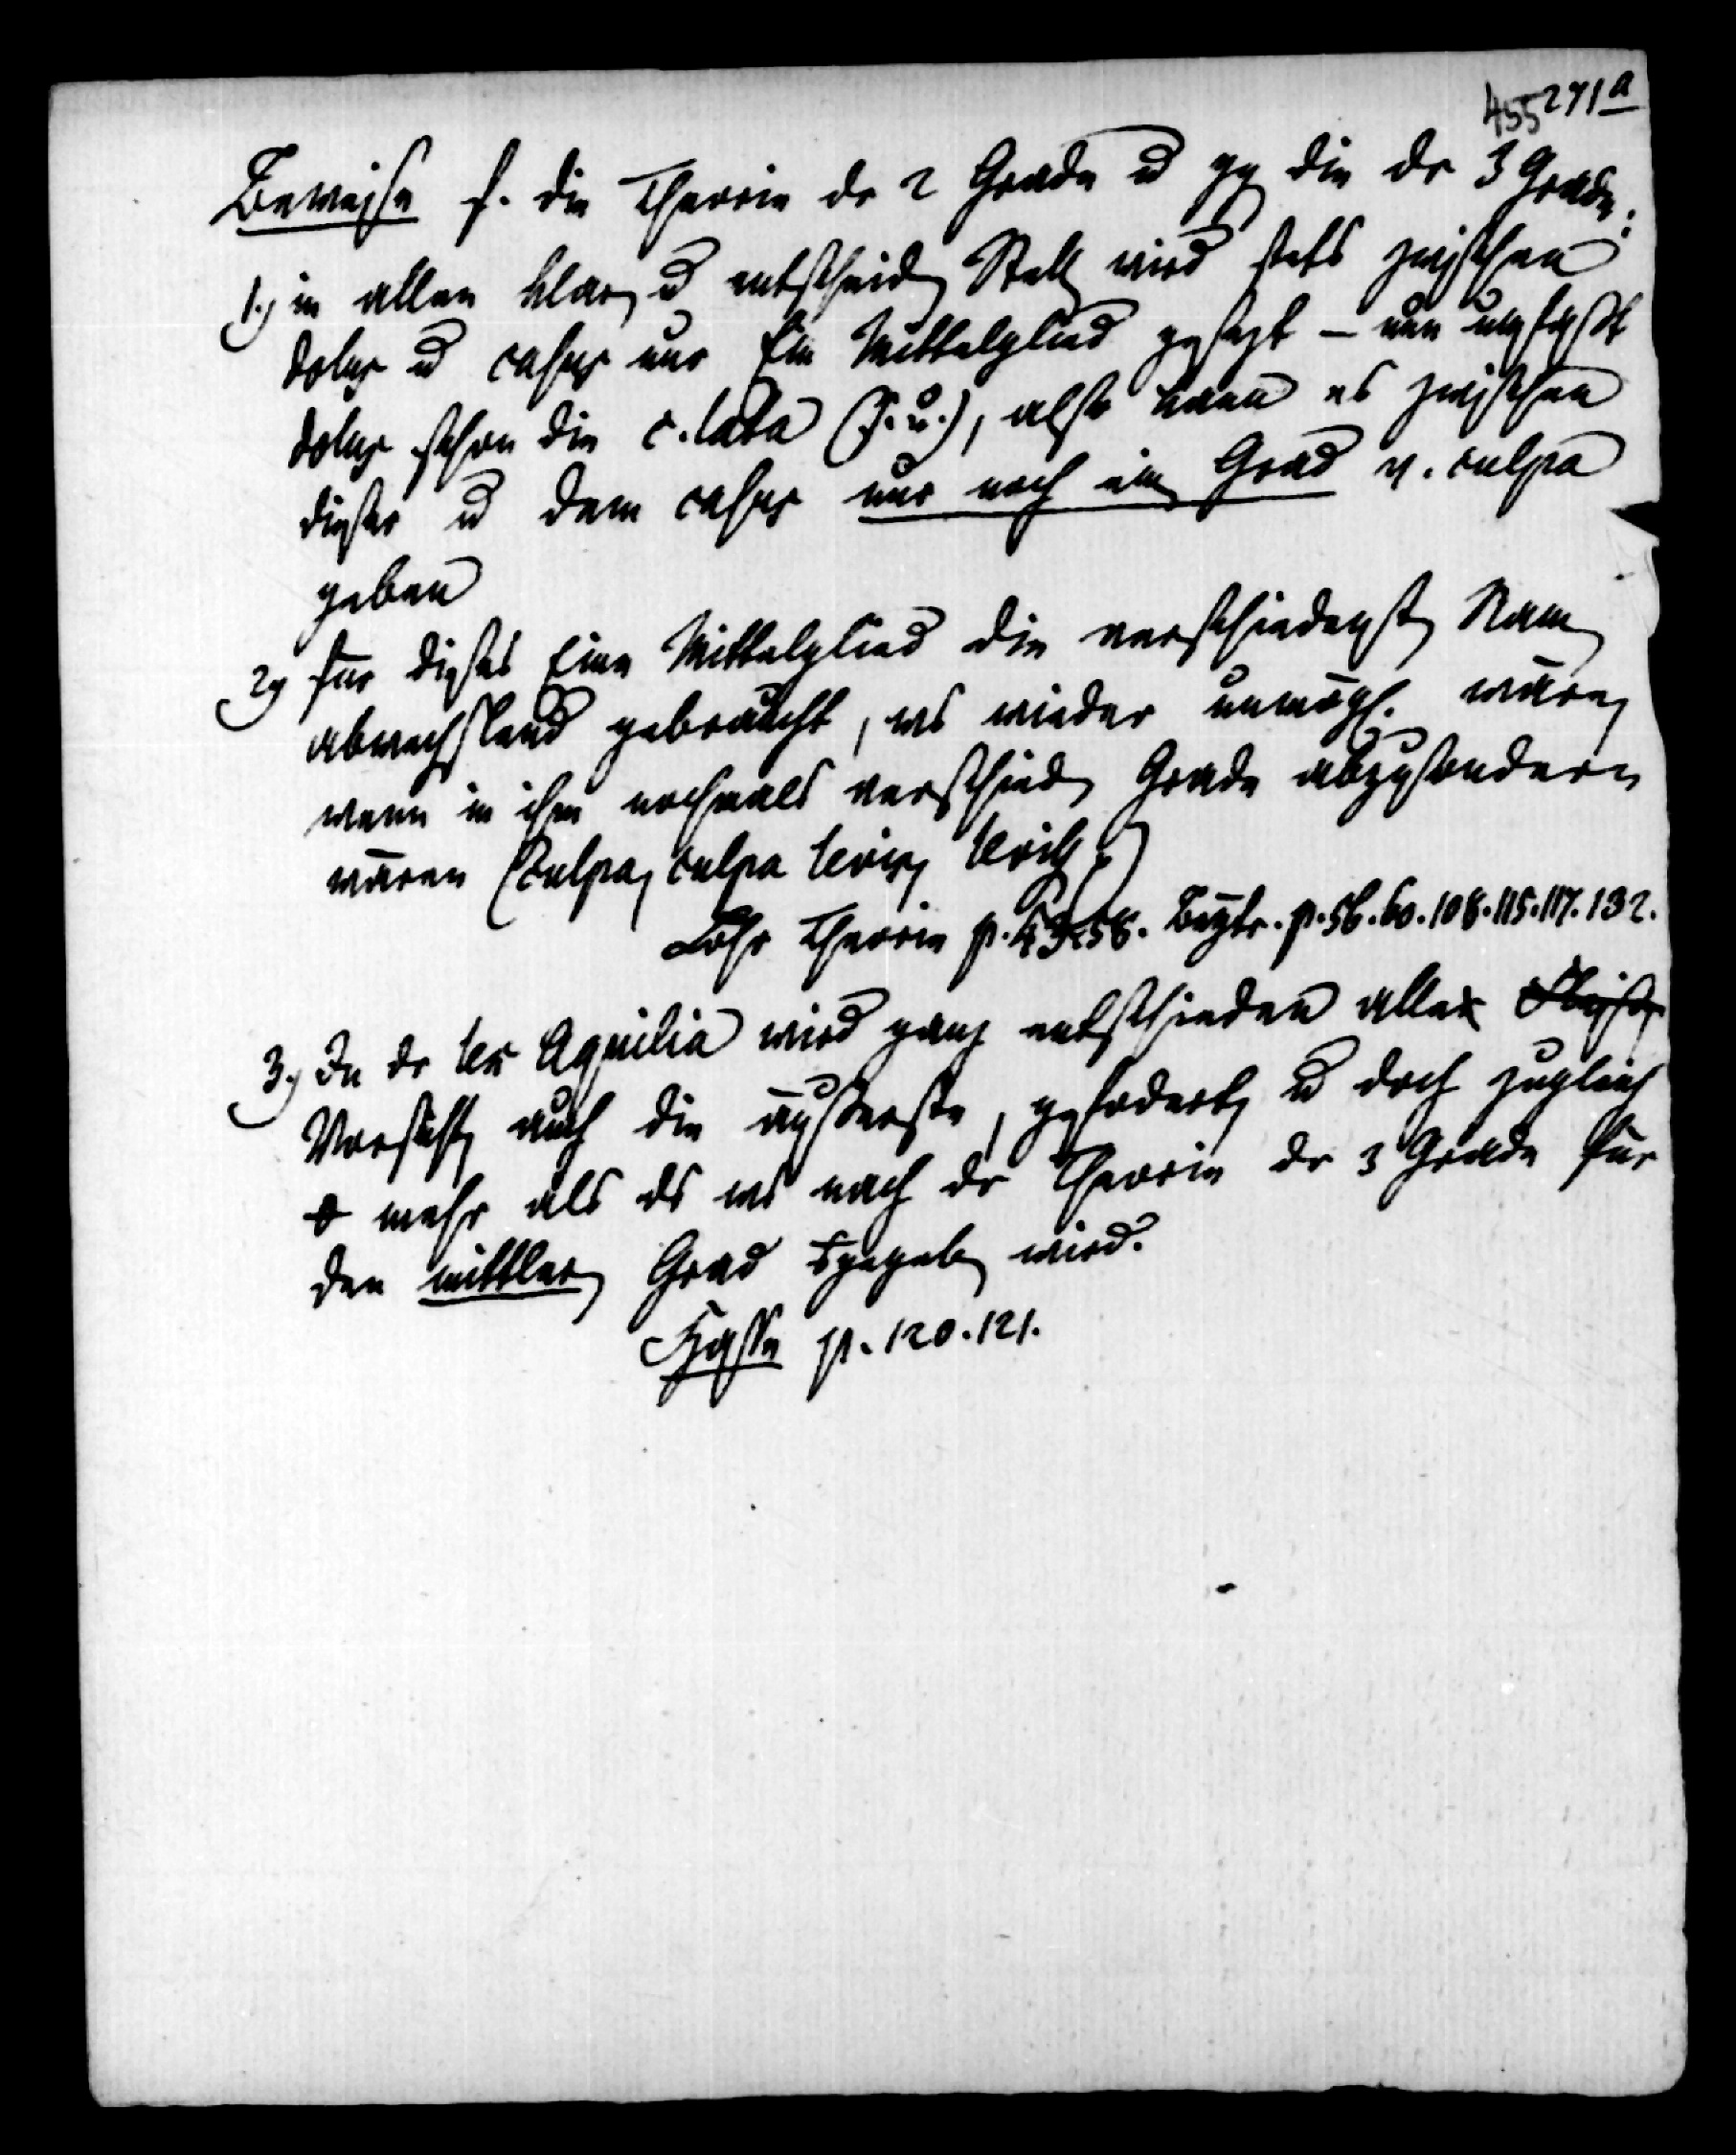 455 271a
Beweise f. die Theorie dr 2 Grade u gg die dr 3 Grade:
1.) in allen klar u entscheid Stell wird stets zwischen
dolus u casus nur Ein Mittelglied gesezt – nun umfaßt
dolus schon die c. lata (s. o.), also kann es zwischen
dieser u dem casus nur noch ein Grad v. culpa
geben
2) für dieses Eine Mittelglied die verschiedenst Nam
abwechslend gebraucht, ws wieder unmögl. wäre,
wenn in ihm nochmals verschied Grade abzusondern
wären (culpa, culpa levis, levior)
Löhr Theorie p. 43-58. Beytr. p. 56. 60. 108. 115. 117. 132.
3.) In dr lex Aquilia wird ganz entschieden alle
Vorsicht, auch die äußerste, gefodert, u doch zugleich
mehr als ds ws nach dr Theorie dr 3 Grade für
den mittler Grad gegeb wird.
Hasse p. 120. 121.